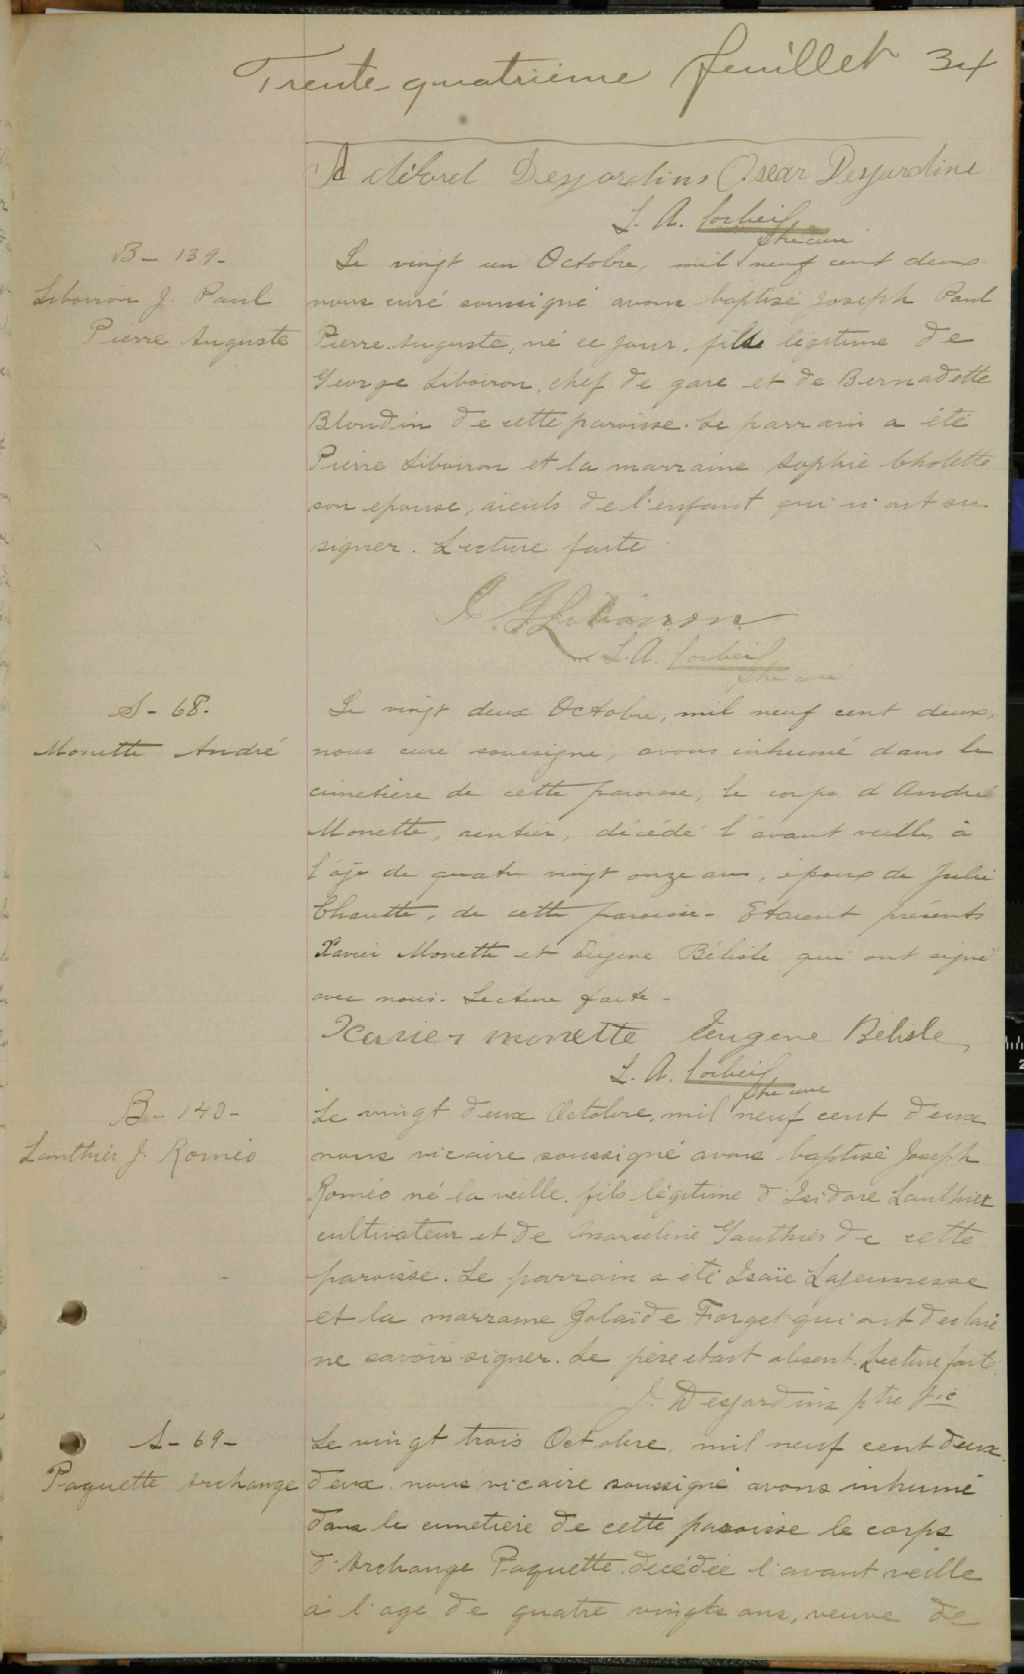 Trente-quatrième feuillet 34
Desjardins Oscar Desjardins
L. A. Corbeil
Ptre curé
B- 139-
Liboiron J. Paul
Pierre Auguste
Le vingt un Octobre, mil neuf cent deux
nous curé soussigné avons baptisé Joseph Paul
Pierre Auguste, né ce jour, fils légitime de
George Liboiron, chef de gare et de Bernadette
Blondin de cette paroisse. Le parrain a été
Pierre Liboiron et la marraine Sophie Cholette
son epouse, aïeuls de l'enfant qui n'ont su
signer. Lecture faite
J. G Liboiron
L. A. Corbeil
Ptre curé
S- 68.
Monette André
Le vingt deux Octobre, mil neuf cent deux,
nous curé soussigné, avons inhumé dans le
cimetière de cette paroisse, le corps d'André
Monette, rentier, décédé l'avant veille, à
l'âge de quatre vingt onze ans, époux de Julie
de cette paroisse- Etaient présents
Xavier Monette et Eugène Bélisle qui ont signé
avec nous. Lecture faite-
Xavier monette Eugene Bélisle
L. A. Corbeil
Ptre curé
B- 140-
Lanthier J. Roméo
Le vingt deux Octobre, mil neuf cent deux
nous vicaire soussigné avons baptisé Joseph
Roméo né la veille, fils légitime d'Isidore Lanthier
cultivateur et de Marceline Gauthier de cette
paroisse. Le parrain a été Isaïe Lajeunesse
et la marraine Zolaïde Forget qui ont déclaré
ne savoir signer. Le père etait absent. Lecture faite.
J. Desjardins ptre Vic
S- 69-
Paquette Archange
Le vingt trois Octobre, mil neuf cent deux
deux nous vicaire soussigné avons inhumé
dans le cimetière de cette paroisse le corps
d'Archange Paquette décédée l'avant veille
à l'age de quatre vingts ans, veuve de